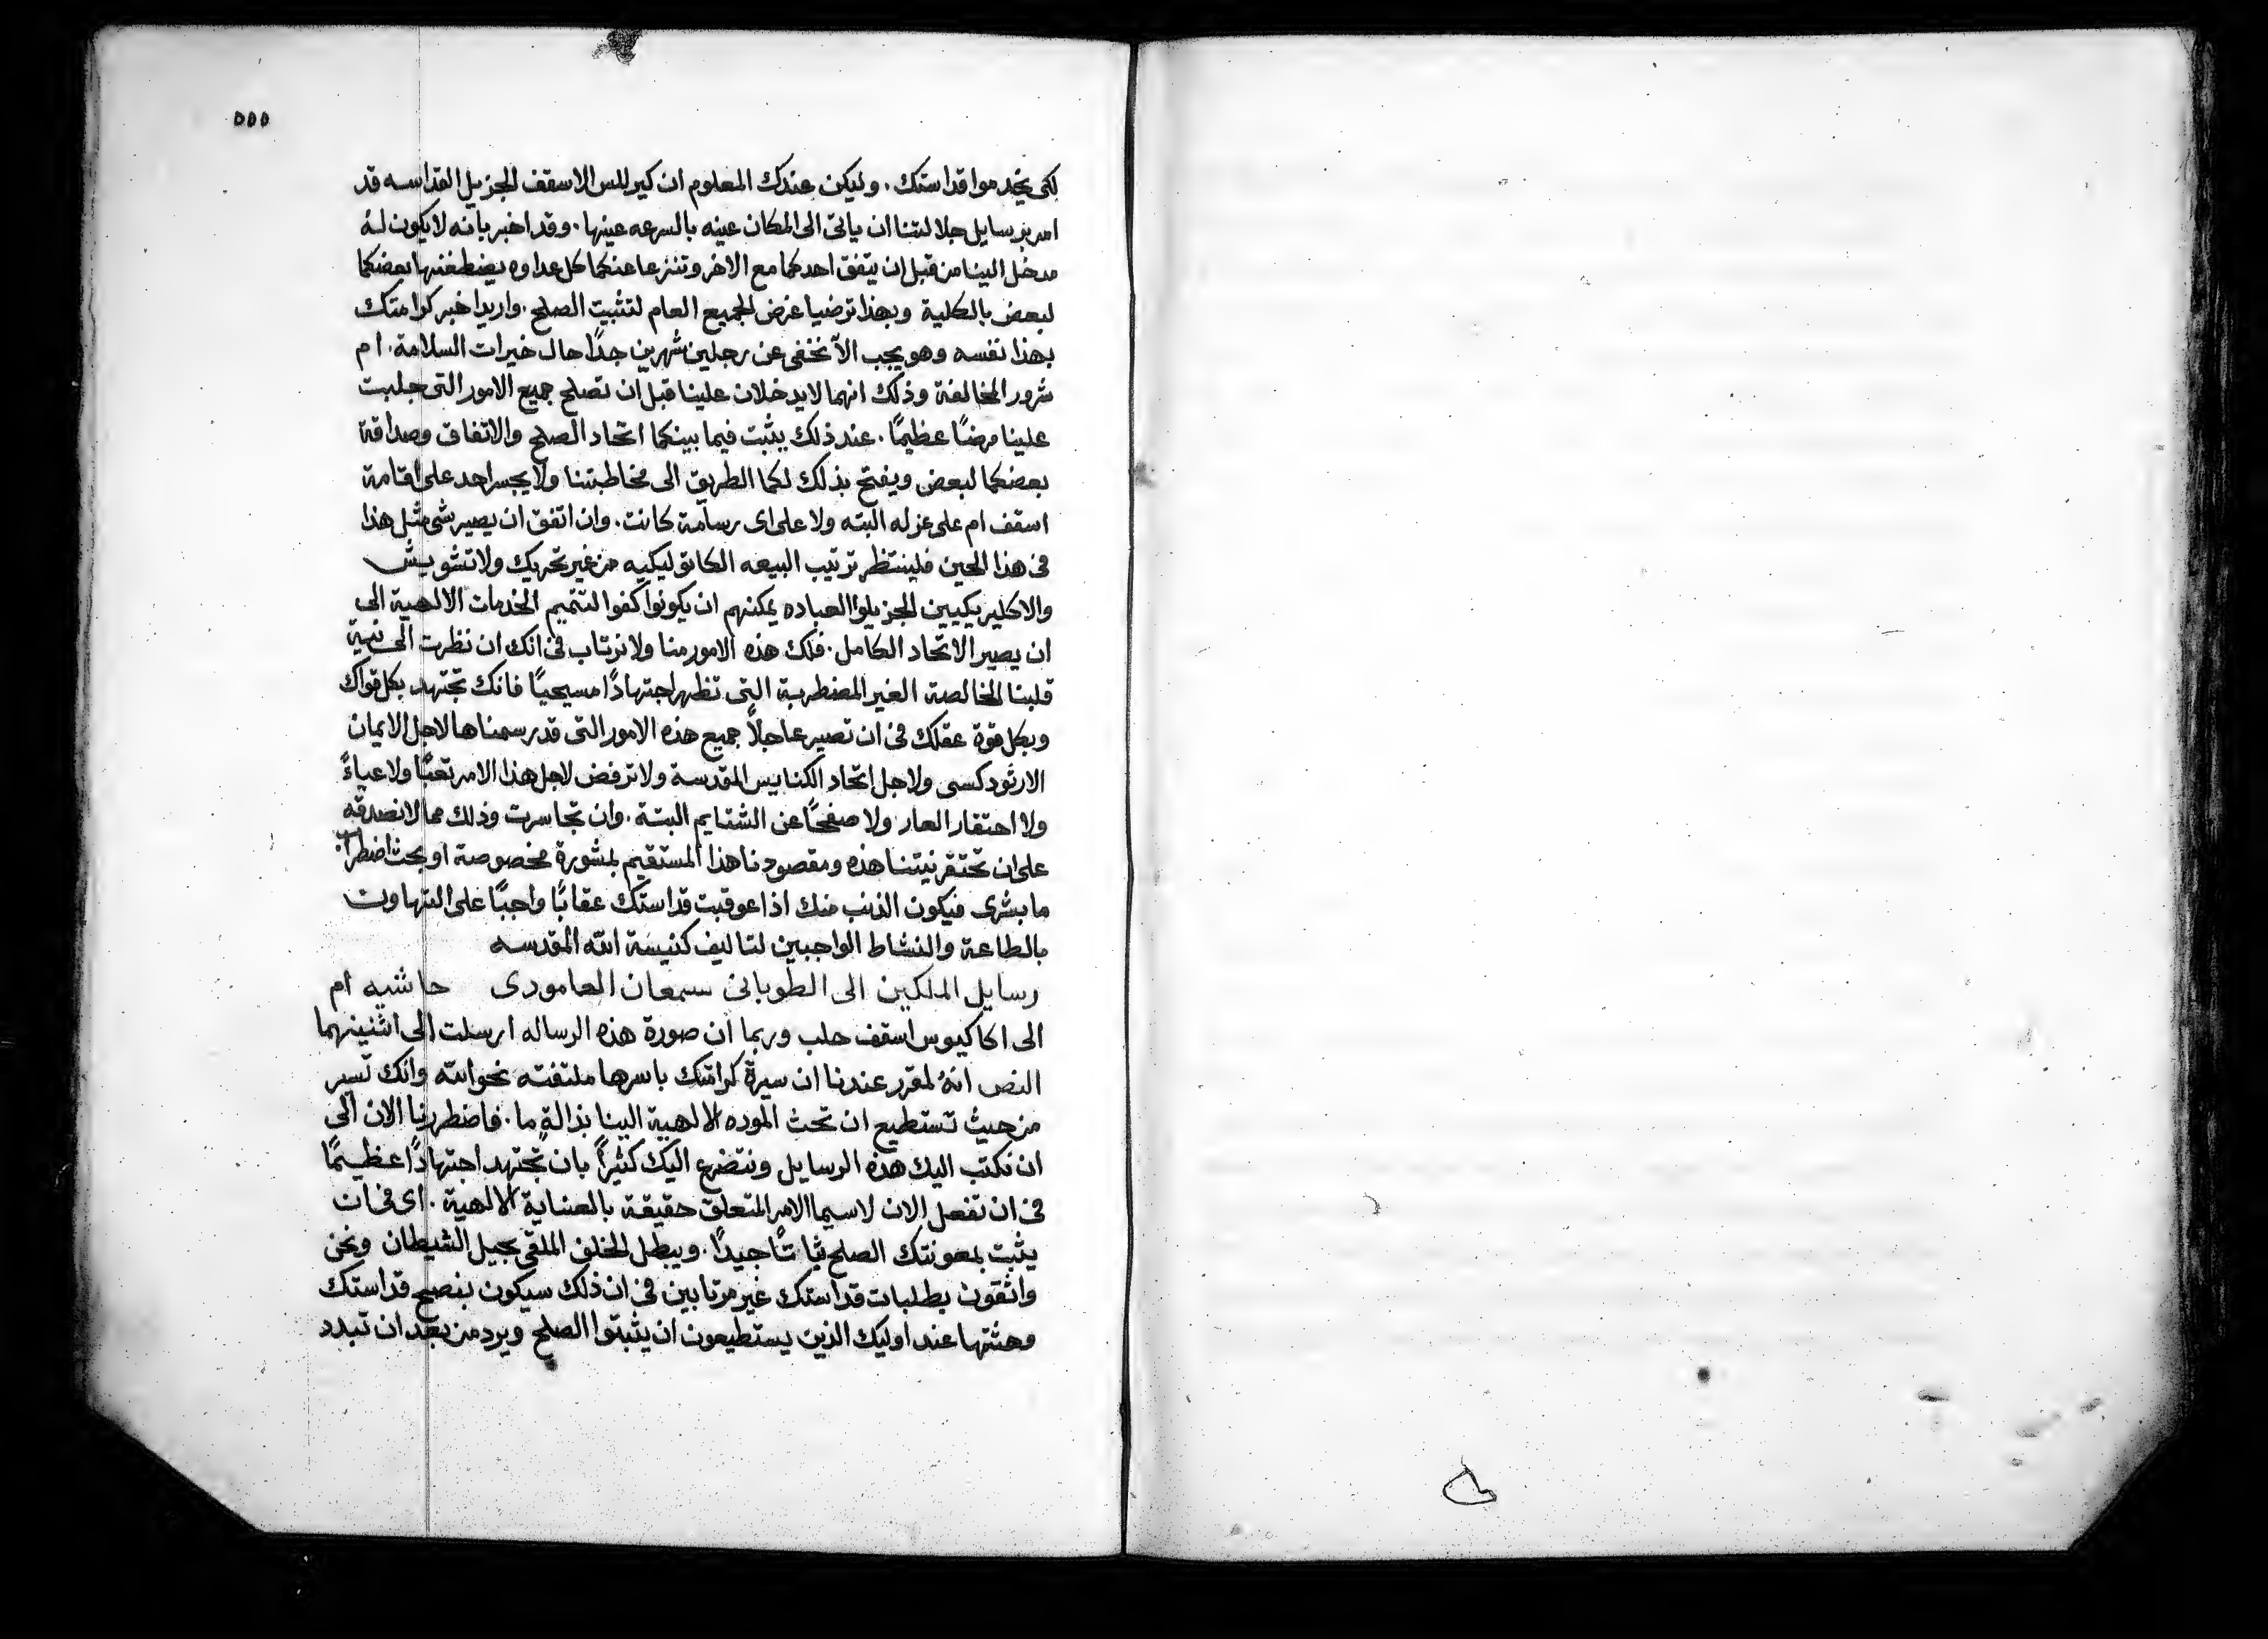 ٥٥٥
لكى يخدموا قداستك . وليكن عندك المعلوم ان كيرللس الاسقف الجزيل القداسه قد
امر برسايل جلالتنا ان ياتى الى المكان عينه بالسرعه عينها . وقد اخبر بانه لا يكون له
مدخل الينا من قبل ان يتفق احدكما مع الاخر وتنزعا عنكما كل عداوه يضطغنها بعضكما
لبعض بالكلية وبهذا ترضيا غرض الجميع العام لتثبيت الصلح . واريد اخبر كرامتك
بهذا نفسه وهو يجب الّا نخفى عن رجلين شهرين جدًا حال خيرات السلامة . ام
شرور المخالفة وذلك انهما لا يدخلان علينا قبل ان تصلح جميع الامور التى جلبت
علينا مرضًا عظيمًا . عند ذلك يثبت فيما بينكما اتحاد الصلح والاتفاق وصداقة
بعضكما لبعض ويفتح بذلك لكما الطريق الى مخاطبتنا ولا يجسر احد على اقامة
اسقف ام على عزله البته ولا على اى رسامة كانت . وان اتفق ان يصير شى مثل هذا
فى هذا الحين فلينتظر ترتيب البيعه الكاتوليكيه من غير تحريك ولا تشويش
والاكليريكيين الجزيلوا العباده يمكنهم ان يكونوا كفوا لتتميم الخدمات الالهية الى
ان يصير الاتحاد الكامل . فلك هذه الامور منا ولا نرتاب فى انك ان نظرت الى نية
قلبنا الخالصة الغير المضطربة التى تظهر اجتهادًا مسيحيًا فانك تجتهد بكل قواك
وبكل قوة عقلك فى ان تصير عاجلاً جميع هذه الامور التى قد رسمناها لاجل الايمان
الارثودكسى ولاجل اتحاد الكنايس المقدسة ولا ترفض لاجل هذا الامر تعبًا ولا عياءً
ولا احتقار العار ولا صفحًا عن الشتايم البتة . وان تجاسرت وذلك مما لا نصدقه
على ان تحتقر نيتنا هذه ومقصودنا هذا المستقيم بمشورة مخصوصة او بحث اضطراب
ما بشرى فيكون الذنب منك اذا عوقبت قداستك عقابًا واجبًا على التهاون
بالطاعة والنشاط الواجبين لتاليف كنيسة الله المقدسه
رسايل الملكين الى الطوبانى سمعان العامودى حاشيه ام
الى اكاكيوس اسقف حلب وربما ان صورة هذه الرساله ارسلت الى اثنينهما
النص انهُ لمقرر عندنا ان سيرة كرامتك باسرها ملتفته نحو الله وانك تسير
من حيث تستطيع ان تحث الموده الالهية الينا بذالةٍ ما . فاضطررنا الان الى
ان نكتب اليك هذه الرسايل ونتضرع اليك كثيرًا بان تجتهد اجتهادًا عظيمًا
فى ان تفعل الان لاسيما الامر المتعلق حقيقة بالعناية الالهية . اى فى ان
يثبت بمعونتك الصلح ثباتًا جيدًا . ويبطل الخلف الملقى بحيل الشيطان ونحن
واثقون بطلبات قداستك غير مرتابين فى ان ذلك سيكون بنصح قداستك
وحثتها عند اوليك الذين يستطيعون ان يثبتوا الصلح ويرد من بعد ان تبدد